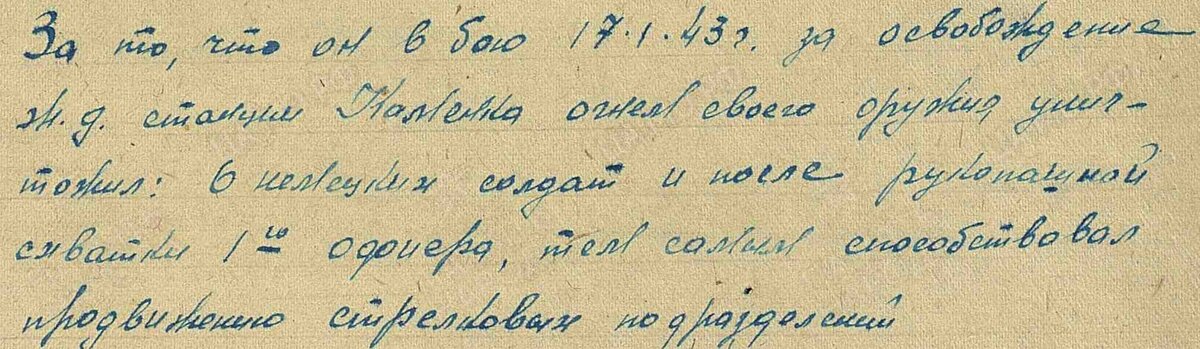 За то, что он в бою 17.1.43г. за освобождение
ж.д. станции Каменка огнем своего оружия унич-
тожил: 6 немецких солдат и после рукопашной
схватки 1го офицера, тем самым способствовал
продвижению стрелковых подразделений